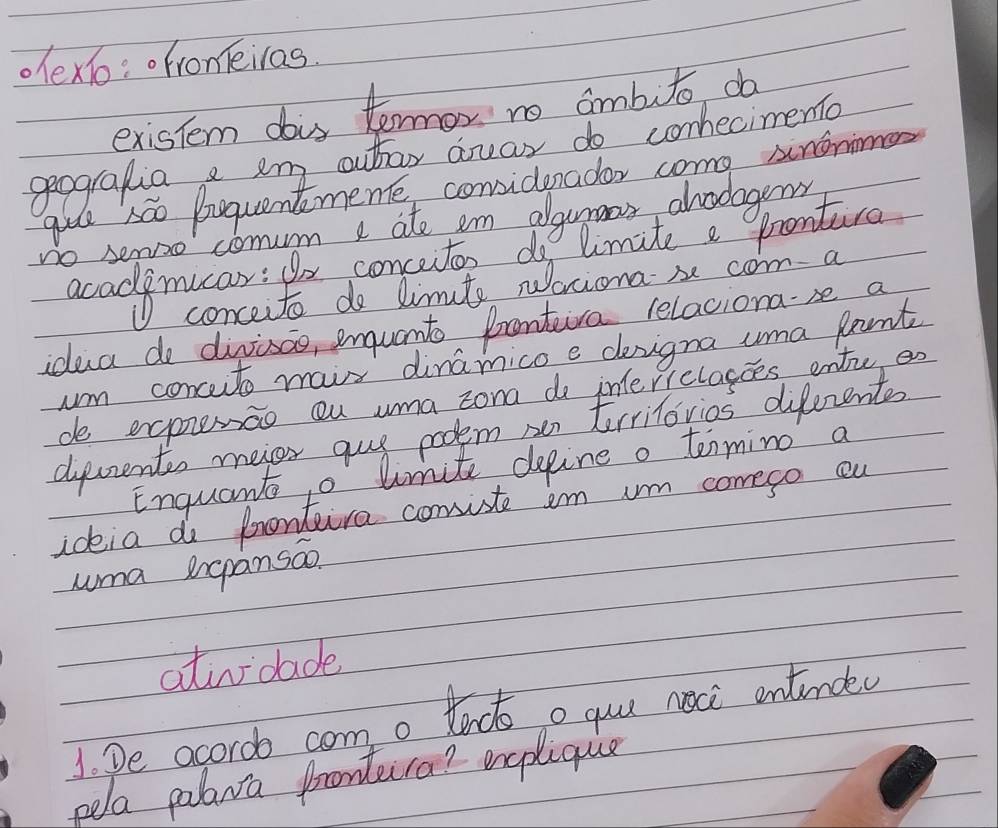 •Texto: •fronteiras.
existem dois termos no âmbito da
geografia e em outras áreas do conhecimento
que são frequentemente considerados como sinônimos
no senso comum e áte em algumas, abodagens
acadêmicas: Os conceitos de limite e fronteira
O conceito de limite relaciona-se com a
idéia de divisão, enquanto fronteira relaciona-se a
um conceito mais dinâmico e designa uma frente
de expressão ou uma zona de interrelações entre, os
diferentes meios que podem ser territórios diferentes
Enquanto, o limite define o término a
ideia de fronteira consiste em um começo ou
uma expansão.
atividade
1. De acordo com o texto o que você entendeu
pela palavra fronteira? explique